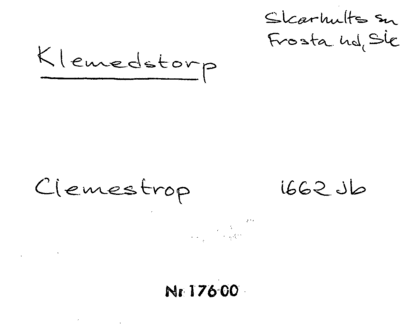 Skarhults sn
Frosta hd, Sk
Klemedstorp
Clemestrop 1662 Jb
Nr 17600